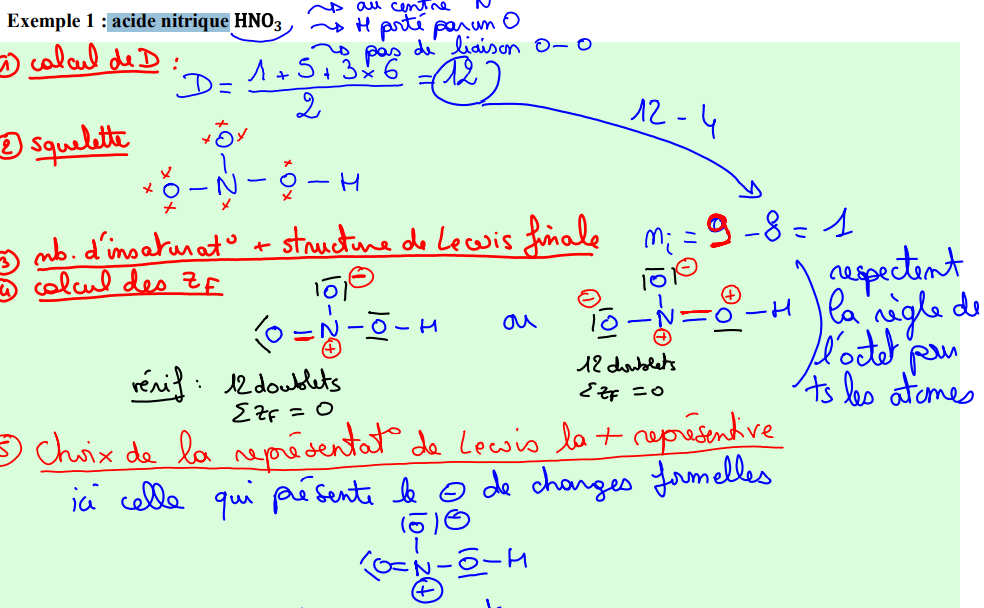 ↝ au centre N
Exemple 1 : acide nitrique HNO₃ ↝ H porté par un O
↝ pas de liaison O–O
1) calcul de D :
D = (1 + 5 + 3×6)/2 = 12
12 - 4
2) squelette
O
O – N – O – H
3) nb. d'insaturat° + structure de Lewis finale
nᵢ = 9 - 8 = 1
4) calcul des ZF
|O| ⊖
|O| ⊖
⟨O = N – O – H
⊕
ou
⊖ |O – N = O – H ⊕
⊕
respectent
la règle de
l'octet pour
ts les atomes
vérif : 12 doublets
Σ ZF = 0
12 doublets
Σ ZF = 0
5) Choix de la représentat° de Lewis la + représentive
ici celle qui présente le ⊖ de charges formelles
|O| ⊖
⟨O = N – O – H
⊕